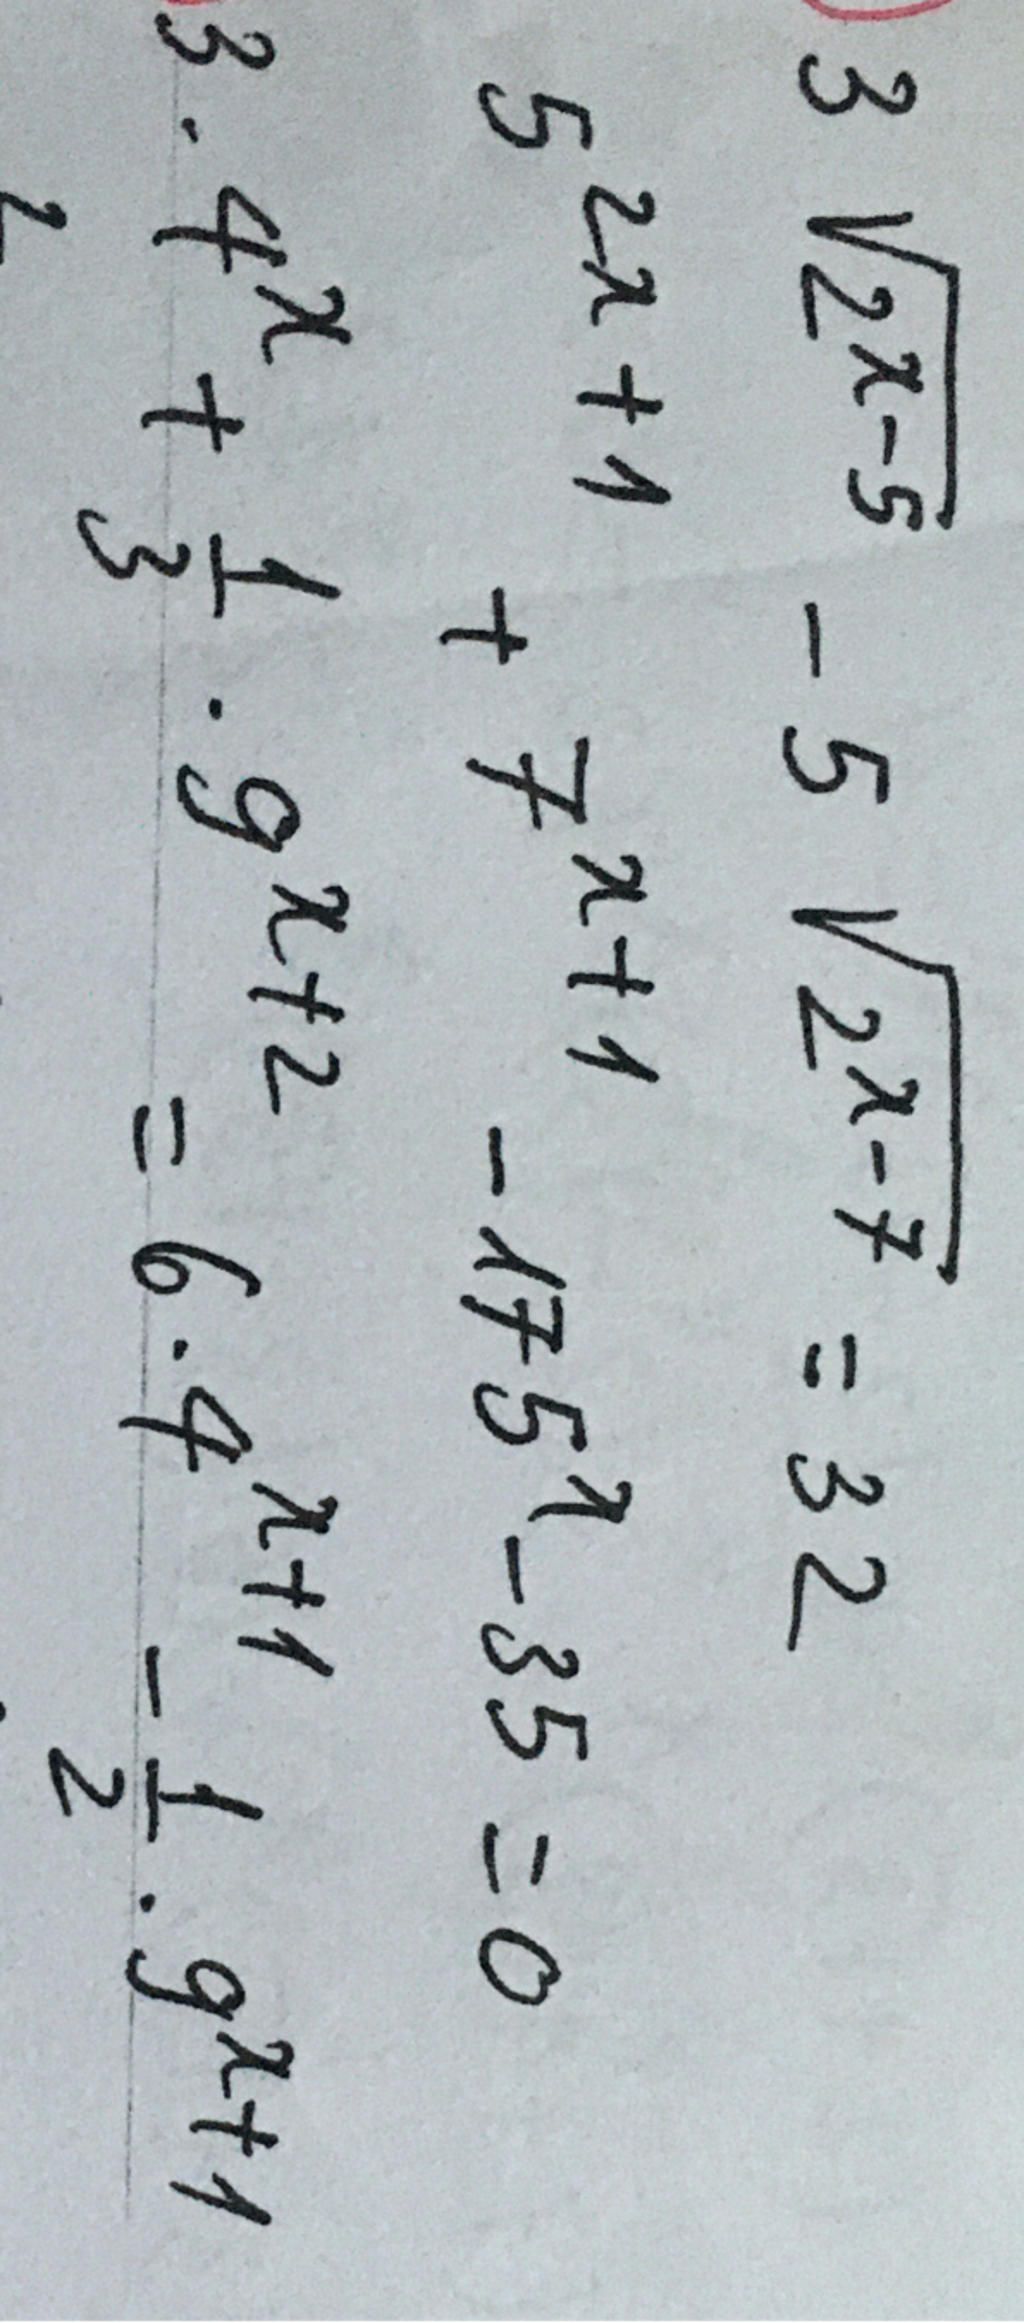 3 √(2^(x-5)) - 5 √(2^(x-7)) = 32
5^(2x+1) + 7^(x+1) - 175^x - 35 = 0
3 · 4^x + 1/3 · 9^(x+2) = 6 · 4^(x+1) - 1/2 · 9^(x+1)